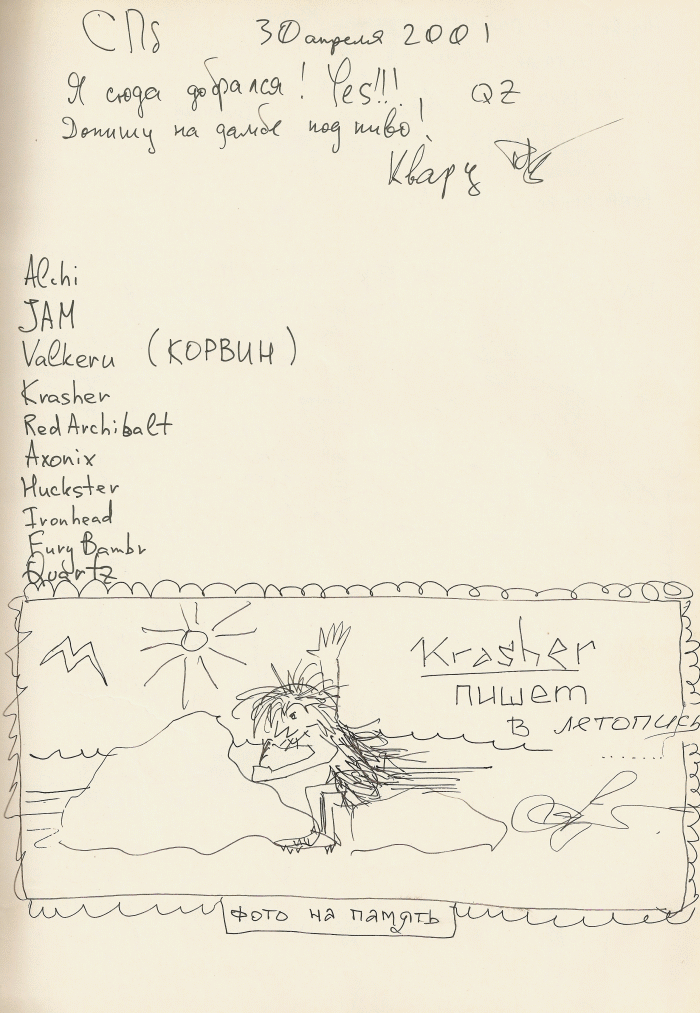 СПб 30 апреля 2001
Я сюда добрался! Yes!!! QZ
Допишу на дамбе под пиво!
Кварц
Alchi
JAM
Valkeru (КОРВИН)
Krasher
Red Archibalt
Axonix
Huckster
Ironhead
Fury Bambr
Quartz
Krasher
пишет
в летопись
.......
фото на память